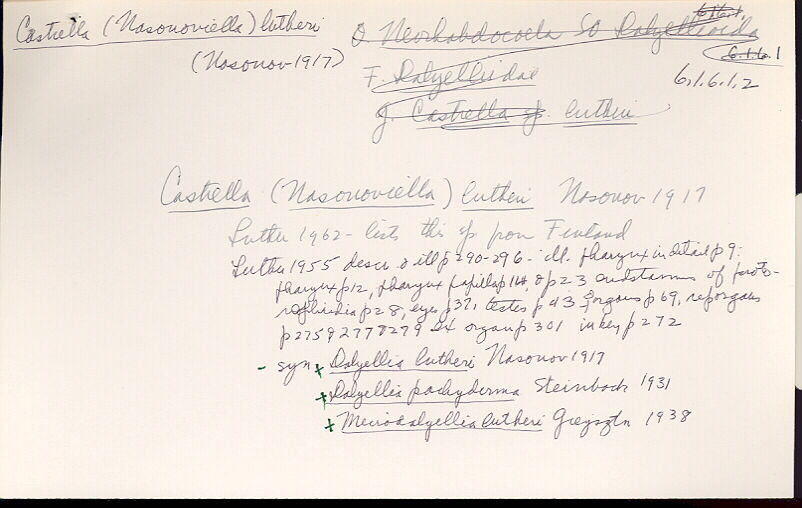 Castrella (Nasonoviella) lutheri
(Nasonov 1917)
O. Neorhabdocoela SO Dalyellioida
6.1.6.1
6.1.6.1.2
F. Dalyellidae
g. Castrella sp. lutheri
Castrella (Nasonoviella) lutheri Nasonov 1917
Luther 1962 - lists this sp from Finland
Luther 1955 descr. & ill p 290-296 - ill. pharynx in detail p 9:
pharynx p 12, pharynx papilla p 14, & p 23 endstamms of proto-
nephridia p 28, eyes p 37, testes p 43, organs p 69, rep organs
p 275 & 277 & 279 ex organ p 301 in key p 272
- syn + Dalyellia lutheri Nasonov 1917
+ Dalyellia pachyderma Steinbock 1931
+ Microdalyellia lutheri Gieysztn 1938